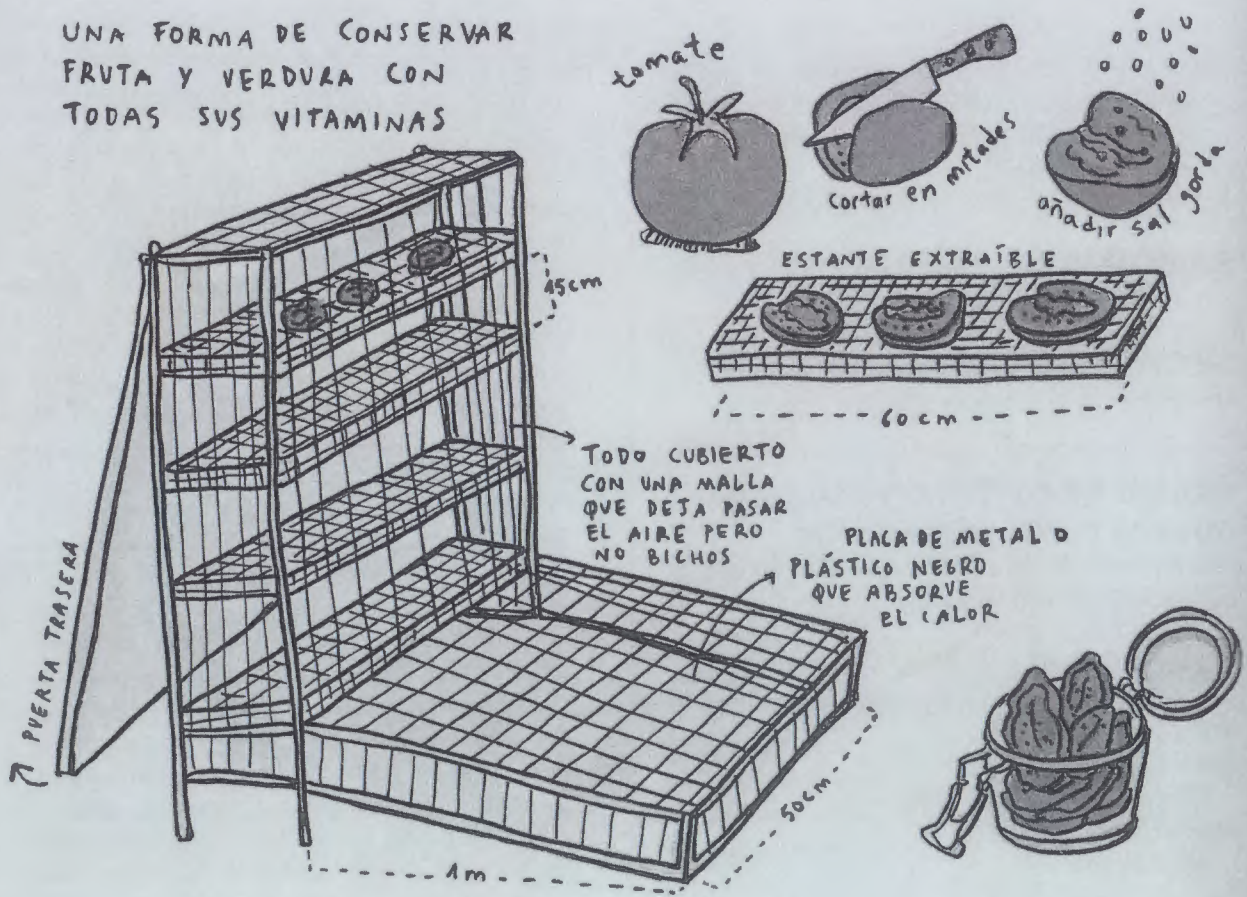 UNA FORMA DE CONSERVAR
FRUTA Y VERDURA CON
TODAS SUS VITAMINAS
tomate
cortar en mitades
añadir sal gorda
ESTANTE EXTRAÍBLE
15cm
60 cm
TODO CUBIERTO
CON UNA MALLA
QUE DEJA PASAR
EL AIRE PERO
NO BICHOS
PLACA DE METAL O
PLÁSTICO NEGRO
QUE ABSORVE
EL CALOR
PUERTA TRASERA
50cm
1m